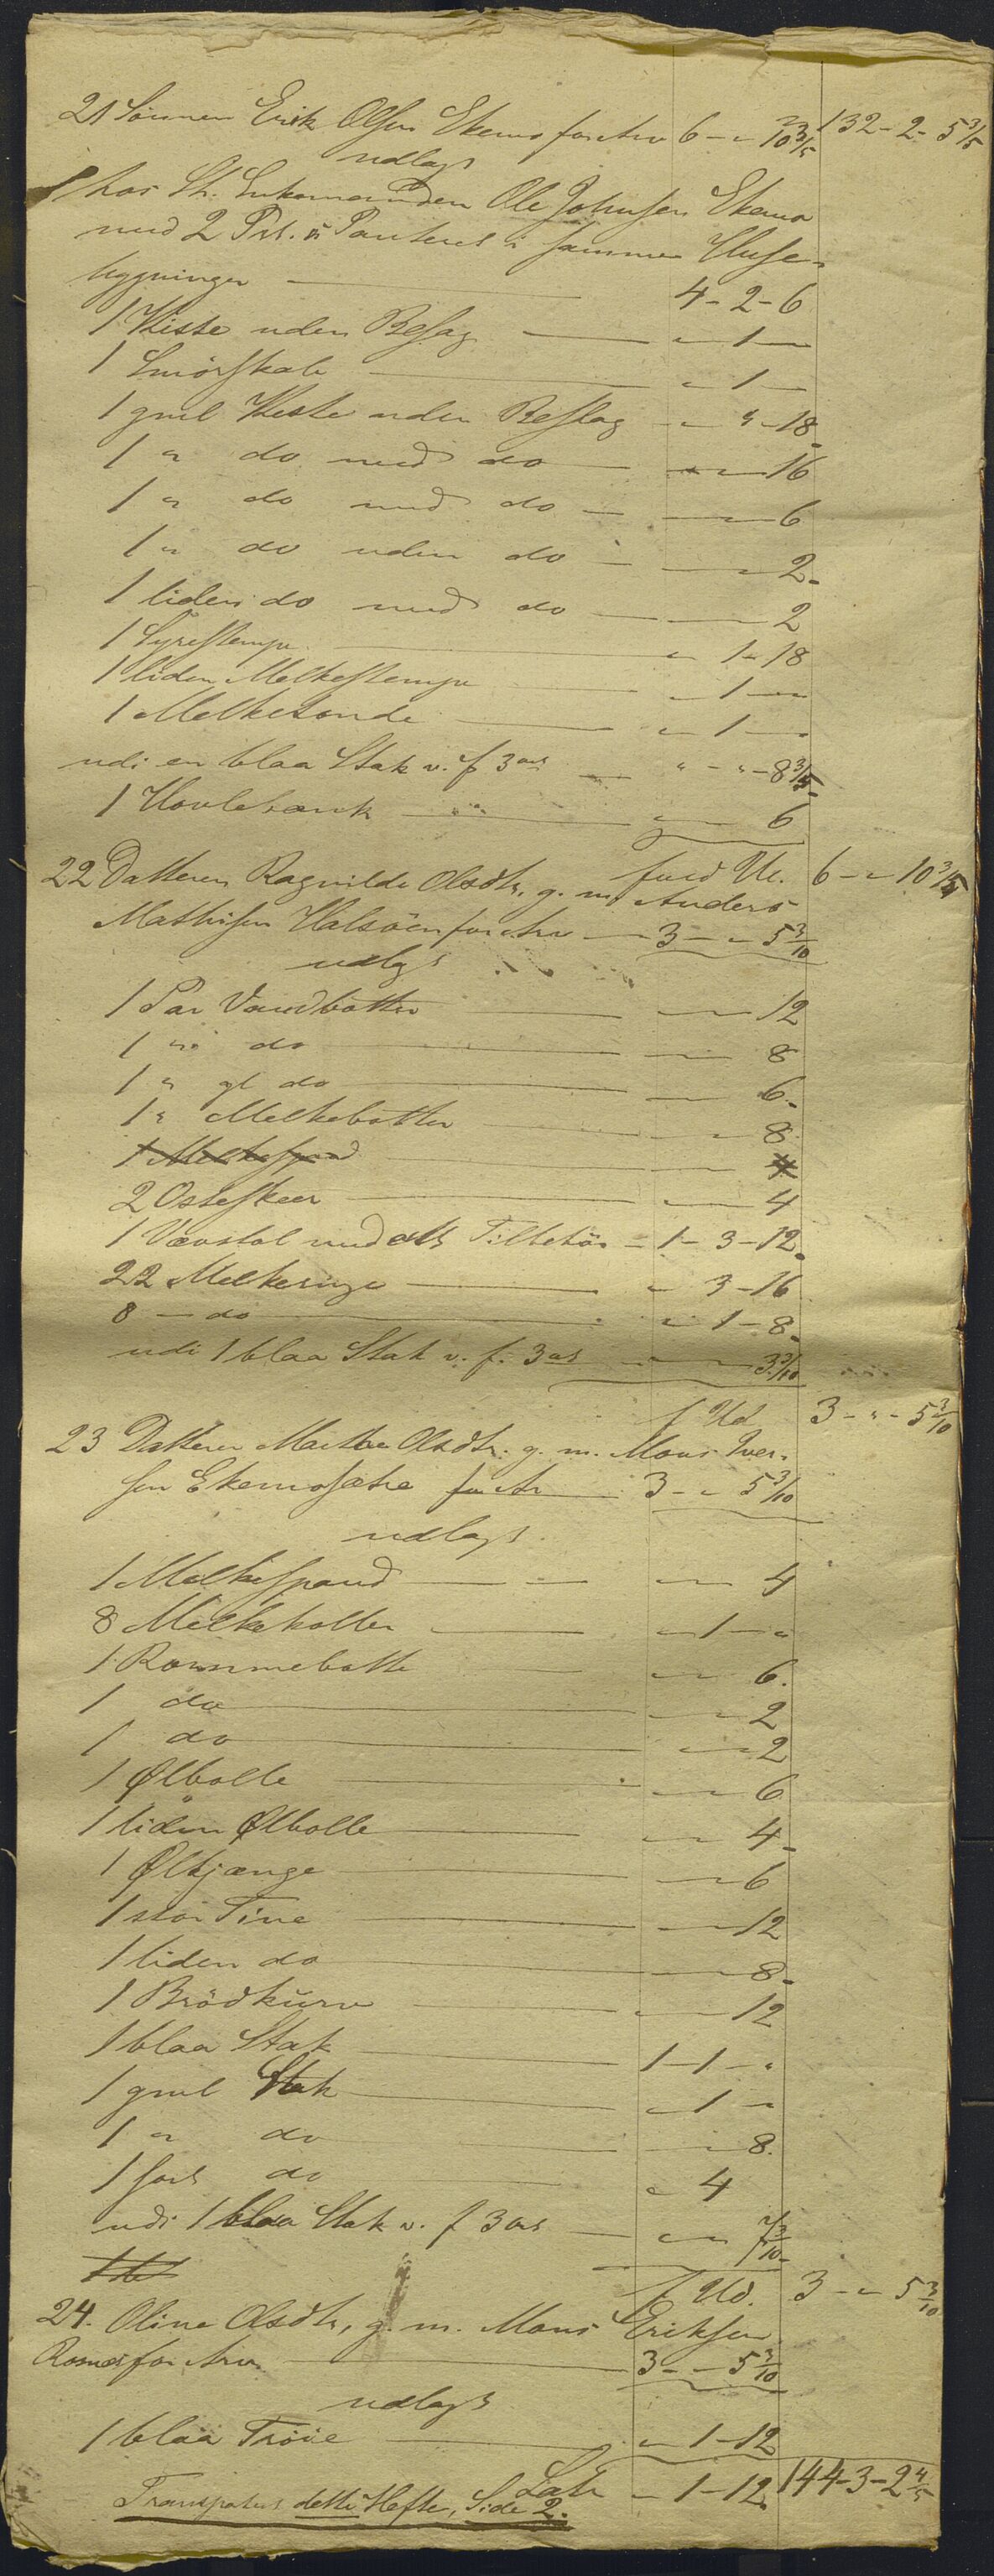 21 Sönnen Erik Olsen Ekemo for Arv 6 - " 10 3/5 132 - 2 - 5 3/5
udlagt
hos St. Enkemanden Ole Johnsen Ekemo
mod 2 Prt. Panteret i samme Huse-
bygninger 4 - 2 - 6
1 Kiste uden Beslag " 1 "
1 Smörskab " 1 "
1 gml Kiste uden Beslag " " - 18
1 " do med do 16
1 " do med do 6
1 " do uden do 2
1 liden do med do 2
1 Syrestempe " 1 - 18
1 liden Melkestempe " 1 "
1 Melkesonde " 1 "
udi en blaa Stak v. f 3 ort " - " - 8 3/5
1 Hovlebænk 6
fuld Ud. 6 - " 10 3/5
22 Datteren Ragnilde Olsdtr, g. m. Anders
Mathisen Halsöen for Arv 3 - " 5 3/10
udlagt
1 Par Vandbötter 12
1 " do 8
1 " gl do 6
1 " Melkebötter 8
1 Melkespand 4
2 Osteskeer 4
1 Vævstol med alt Tilbehör 1 - 3 - 12
22 Melkeringe " 3 - 16
8 - do " 1 - 8
udi 1 blaa Stak v. f. 3 ort 3 3/10
f Ud 3 - " - 5 3/10
23 Datteren Marthe Olsdtr. g. m. Mons Iver-
sen Ekemosætre for Ar 3 - " 5 3/10
udlagt
1 Melkespand 4
8 Melkekoller " 1 - "
1 Rømmebötte 6
1 do 2
1 do 2
1 Ølbolle 6
1 liden Ølbolle 4
1 Ølkjænge 6
1 stor Tine 12
1 liden do 8
1 Brödkurv 12
1 blaa Stak 1 - 1 - "
1 gml Stak " 1 - "
1 " do 8
1 sort do " 4
udi 1 blaa Stak v. f 3 ort 3/10
f Ud. 3 - " 5 3/10
24. Oline Olsdtr, g. m. Mons Eriksen
Romos for Arv 3 - " 5 3/10
udlagt
1 blaa Tröie " 1 - 12
Latr " 1 - 12 144 - 3 - 2 4/5
Transporteres dette Hefte, Side 2.